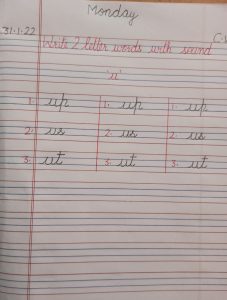 Monday
31.1.22 C.W
Write 2 letter words with sound
'u'
1. up 1. up 1. up
2. us 2. us 2. us
3. ut 3. ut 3. ut